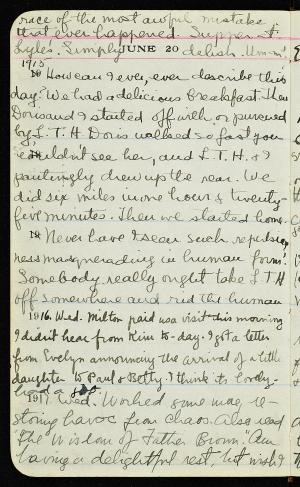 race of the most awful mistake
that ever happened. Supper at
Lyle's. Simply delish. Um-m!
JUNE 20
1915
How can I ever, ever describe this
day? We had a delicious breakfast. Then
Doris and I started off with or pursued
by L.T.H. Doris walked so fast you
couldn't see her, and L.T.H. & I
pantingly drew up the rear. We
did six miles in one hour & twenty-
five minutes. Then we started home.
19 Never have I seen such repulsive-
ness masquerading in human form!
Somebody really ought take L.T.H
off somewhere and rid the human
1916. Wed. Milton paid us a visit this morning
I didn't hear from Kim to-day. I got a letter
from Evelyn announcing the arrival of a little
daughter to Paul & Betty. I think it's lovely.
had a
1917. Wed. Worked some more, re-
storing havoc from chaos. Also read
"The Wisdom of Father Brown." Am
having a delightful rest, but wish I